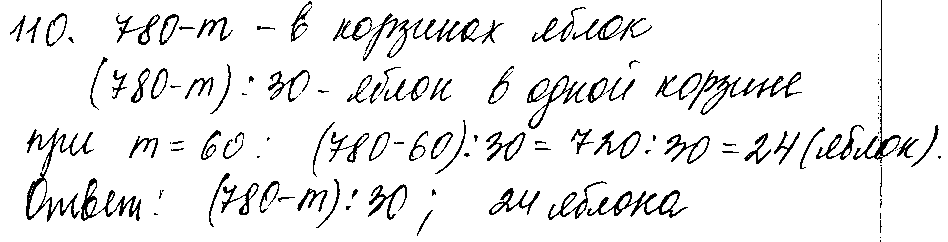 110. 780-m - в корзинах яблок
(780-m):30 - яблок в одной корзине
при m = 60: (780-60):30 = 720:30 = 24 (яблок).
Ответ: (780-m):30; 24 яблока